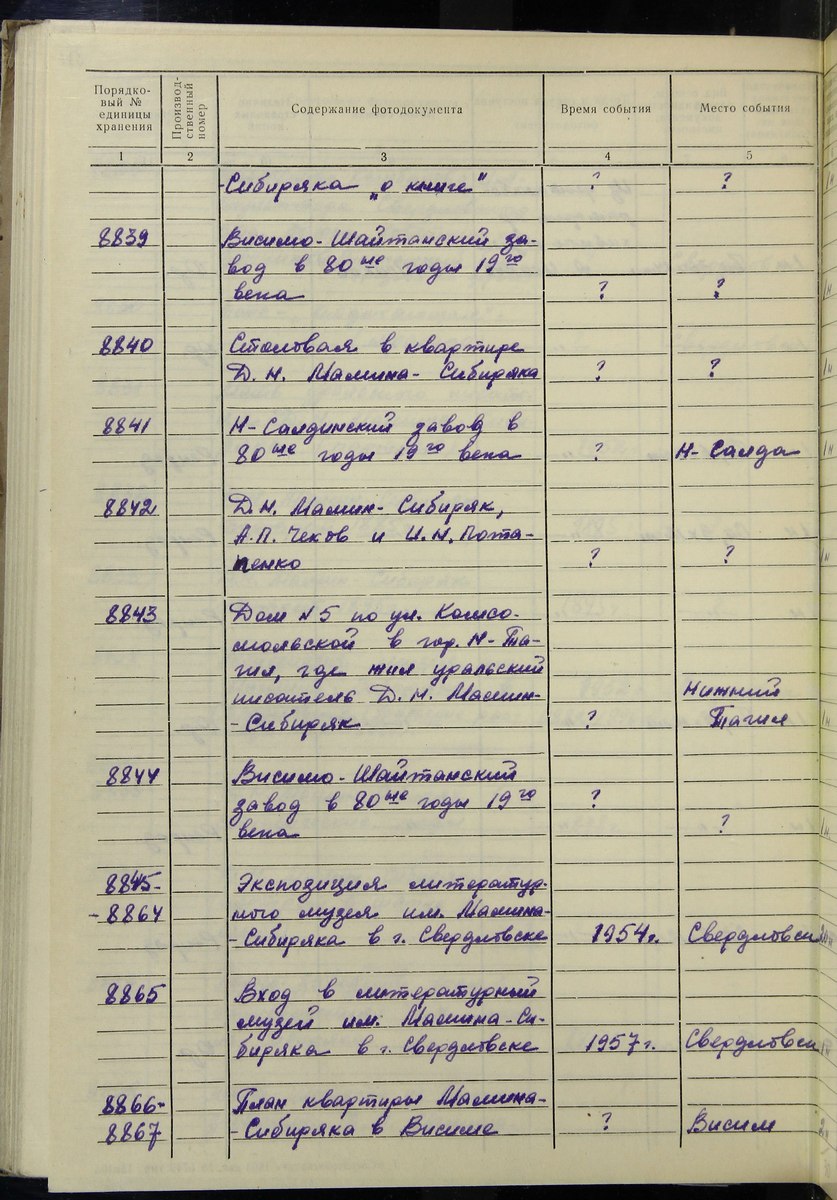 Порядко-
вый №
единицы
хранения
Производ-
ственный
номер
Содержание фотодокумента
Время события
Место события
1 2 3 4 5
-Сибиряка „о книге" ? ?
8839 Висимо-Шайтанский за-
вод в 80ые годы 19го
века ? ?
8840 Столовая в квартире
Д.Н. Мамина-Сибиряка ? ?
8841 Н-Салдинский завод в
80ые годы 19го века ? Н-Салда
8842 Д.Н. Мамин-Сибиряк,
А.П. Чехов и И.Н. Пота-
пенко ? ?
8843 Дом №5 по ул. Комсо-
мольской в гор. Н-Та-
гил, где жил уральский
писатель Д.Н. Мамин- Нижний
-Сибиряк ? Тагил
8844 Висимо-Шайтанский
завод в 80ые годы 19го ?
века ?
8845- Экспозиция литератур-
-8864 ного музея им. Мамина-
-Сибиряка в г. Свердловске 1954г. Свердловск
8865 Вход в литературный
музей им. Мамина-Си-
биряка в г. Свердловске 1957г. Свердловск
8866- План квартиры Мамина-
8867 -Сибиряка в Висиме ? Висим